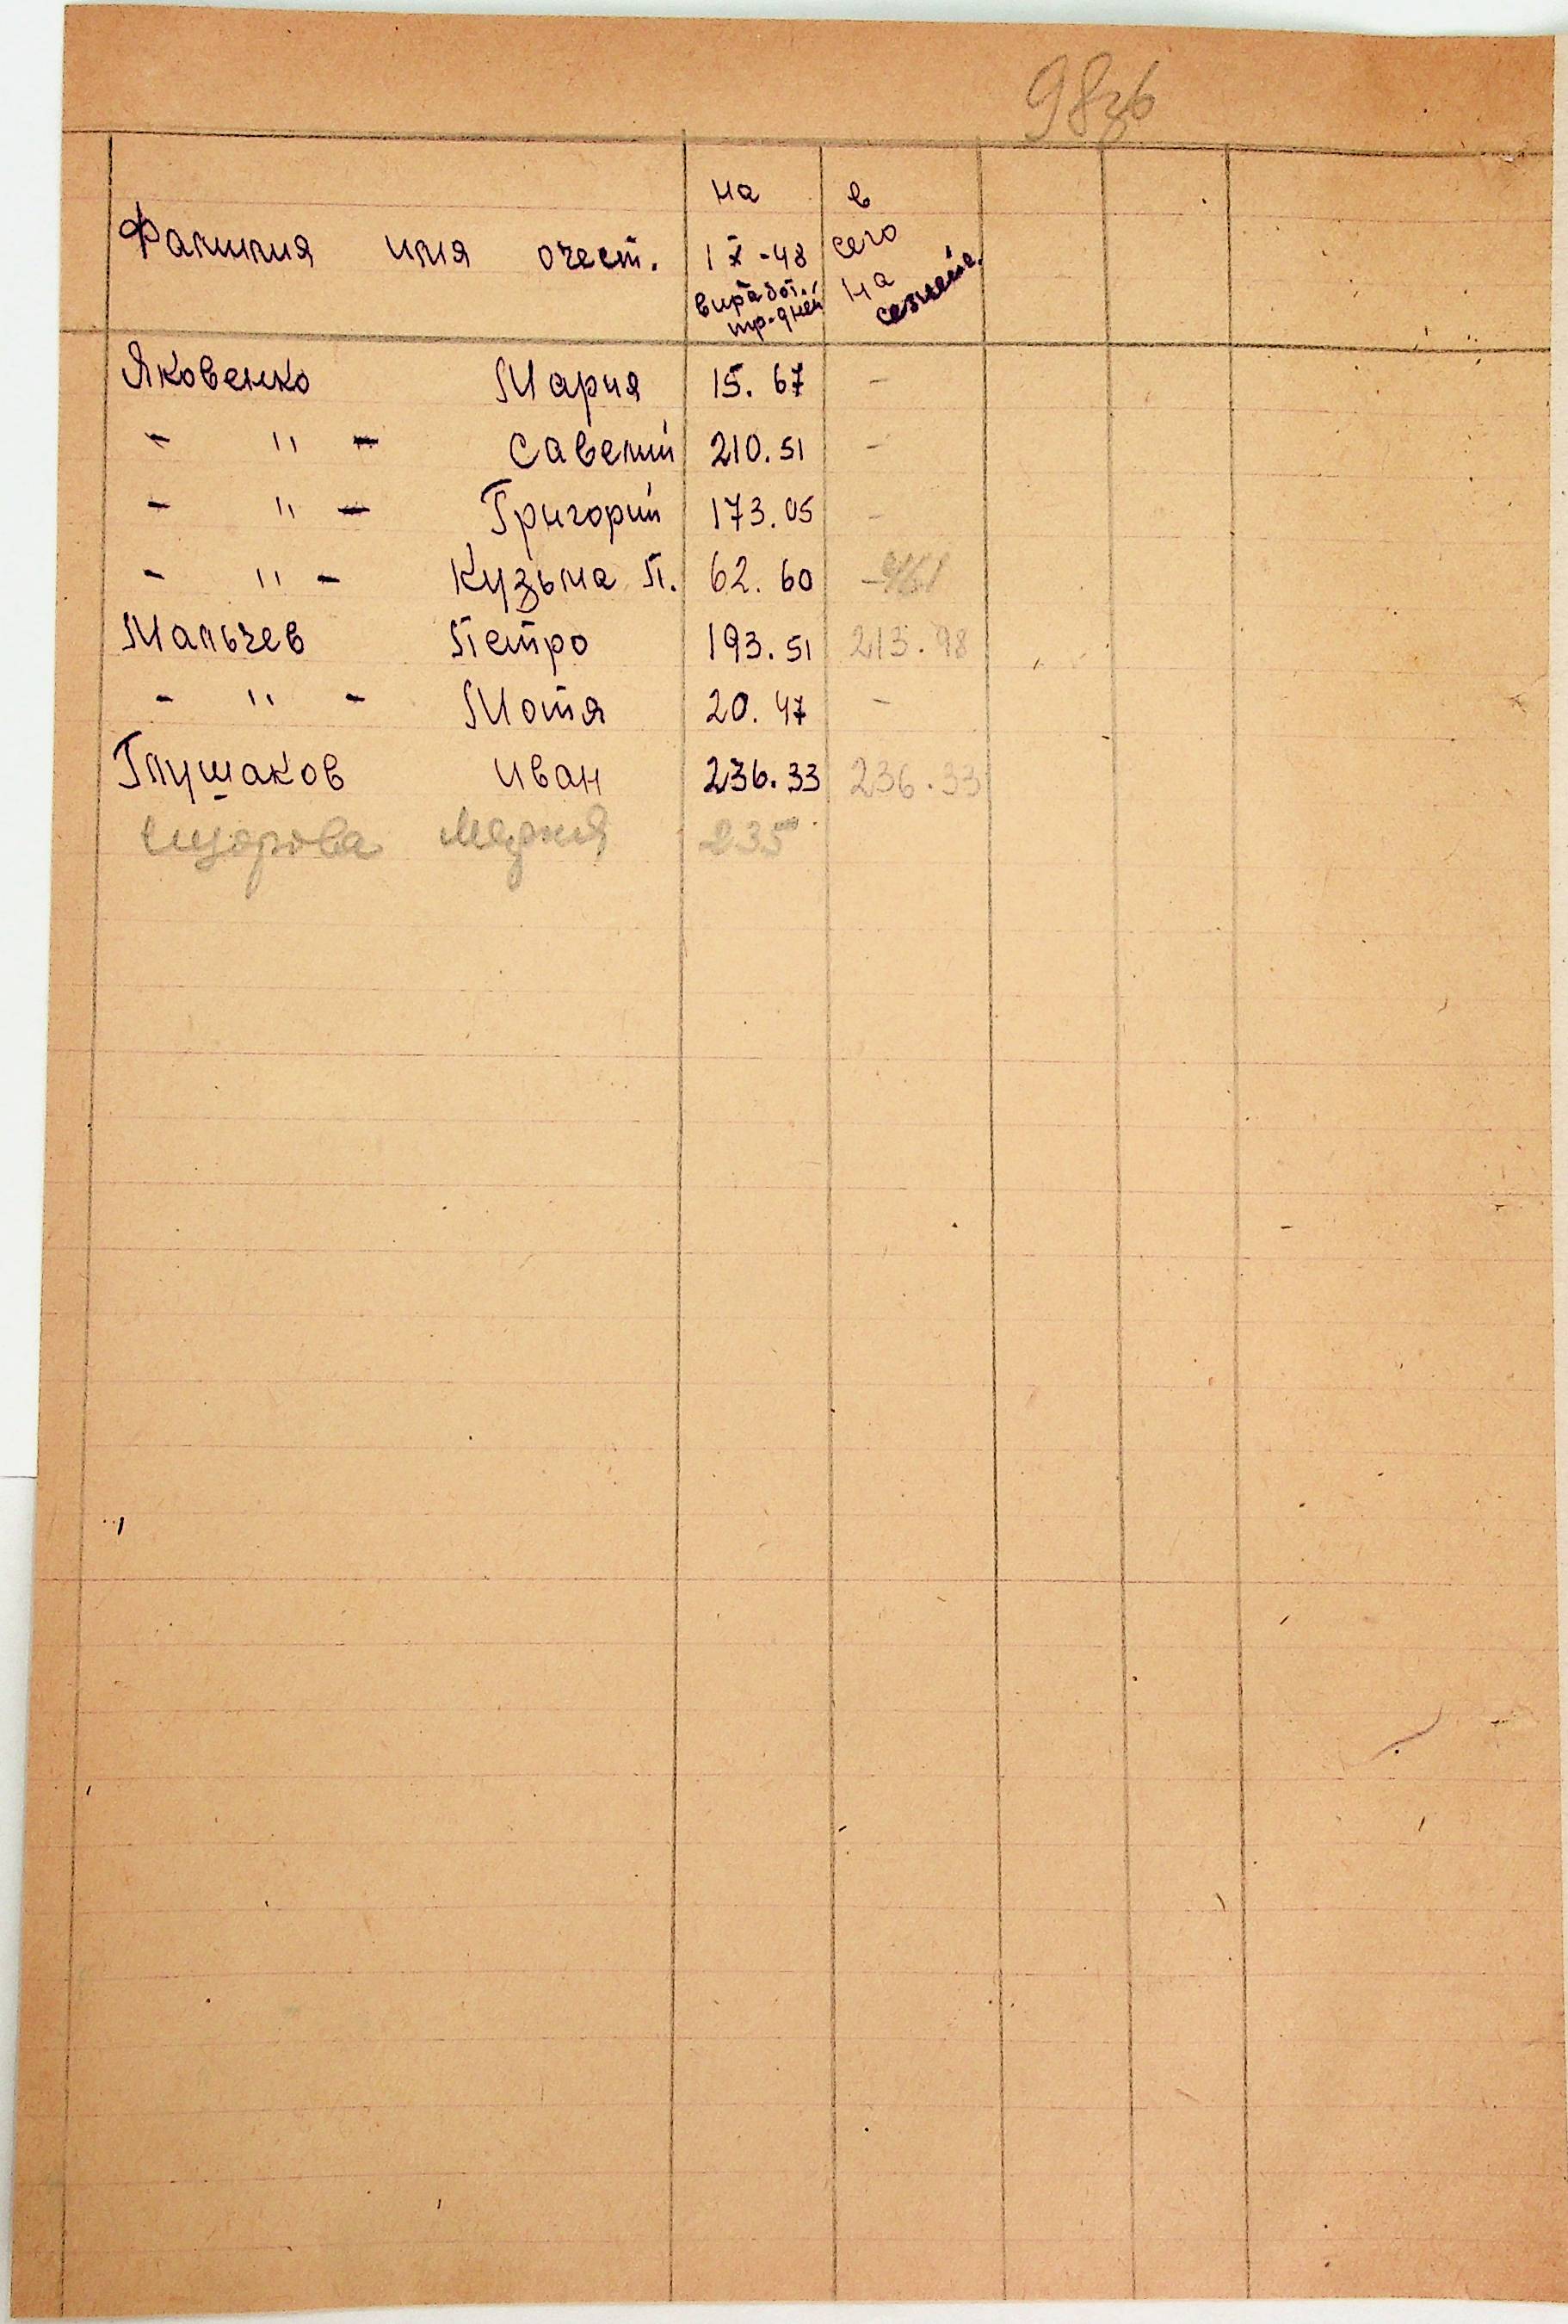 98зв
Фамилия имя очест.
на
1 X -48
виработ.
тр-дней
в
сего
на
Яковенко Мария 15.67 -
- " - Савелий 210.51 -
- " - Григорий 173.05 -
- " - Кузьма П. 62.60
Мальчев Петро 193.51 213.98
- " - Мотя 20.47 -
Глушаков Иван 236.33 236.33
Мария 235